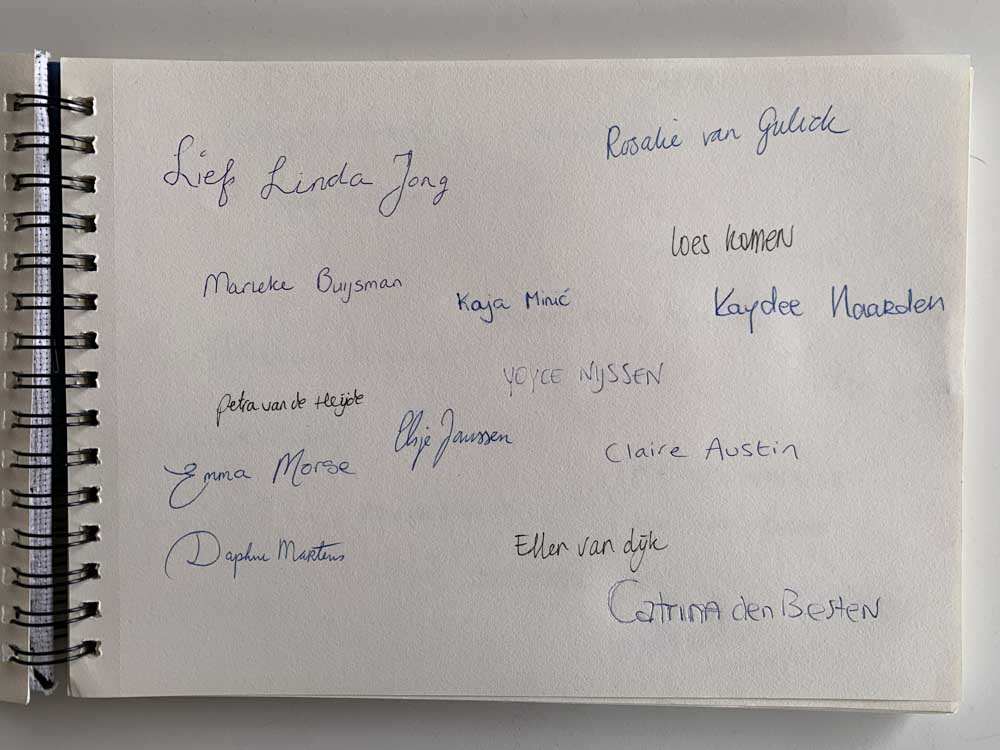 Rosalie van Gulick
Lief Linda Jong
Loes Komen
Marieke Buijsman
Kaja Minić
Kaydee Naarden
YOYCE NIJSSEN
Petra van de Heijde
Elsje Janssen
Claire Austin
Emma Morse
Daphne Martens
Ellen van dijk
Catrina den Besten